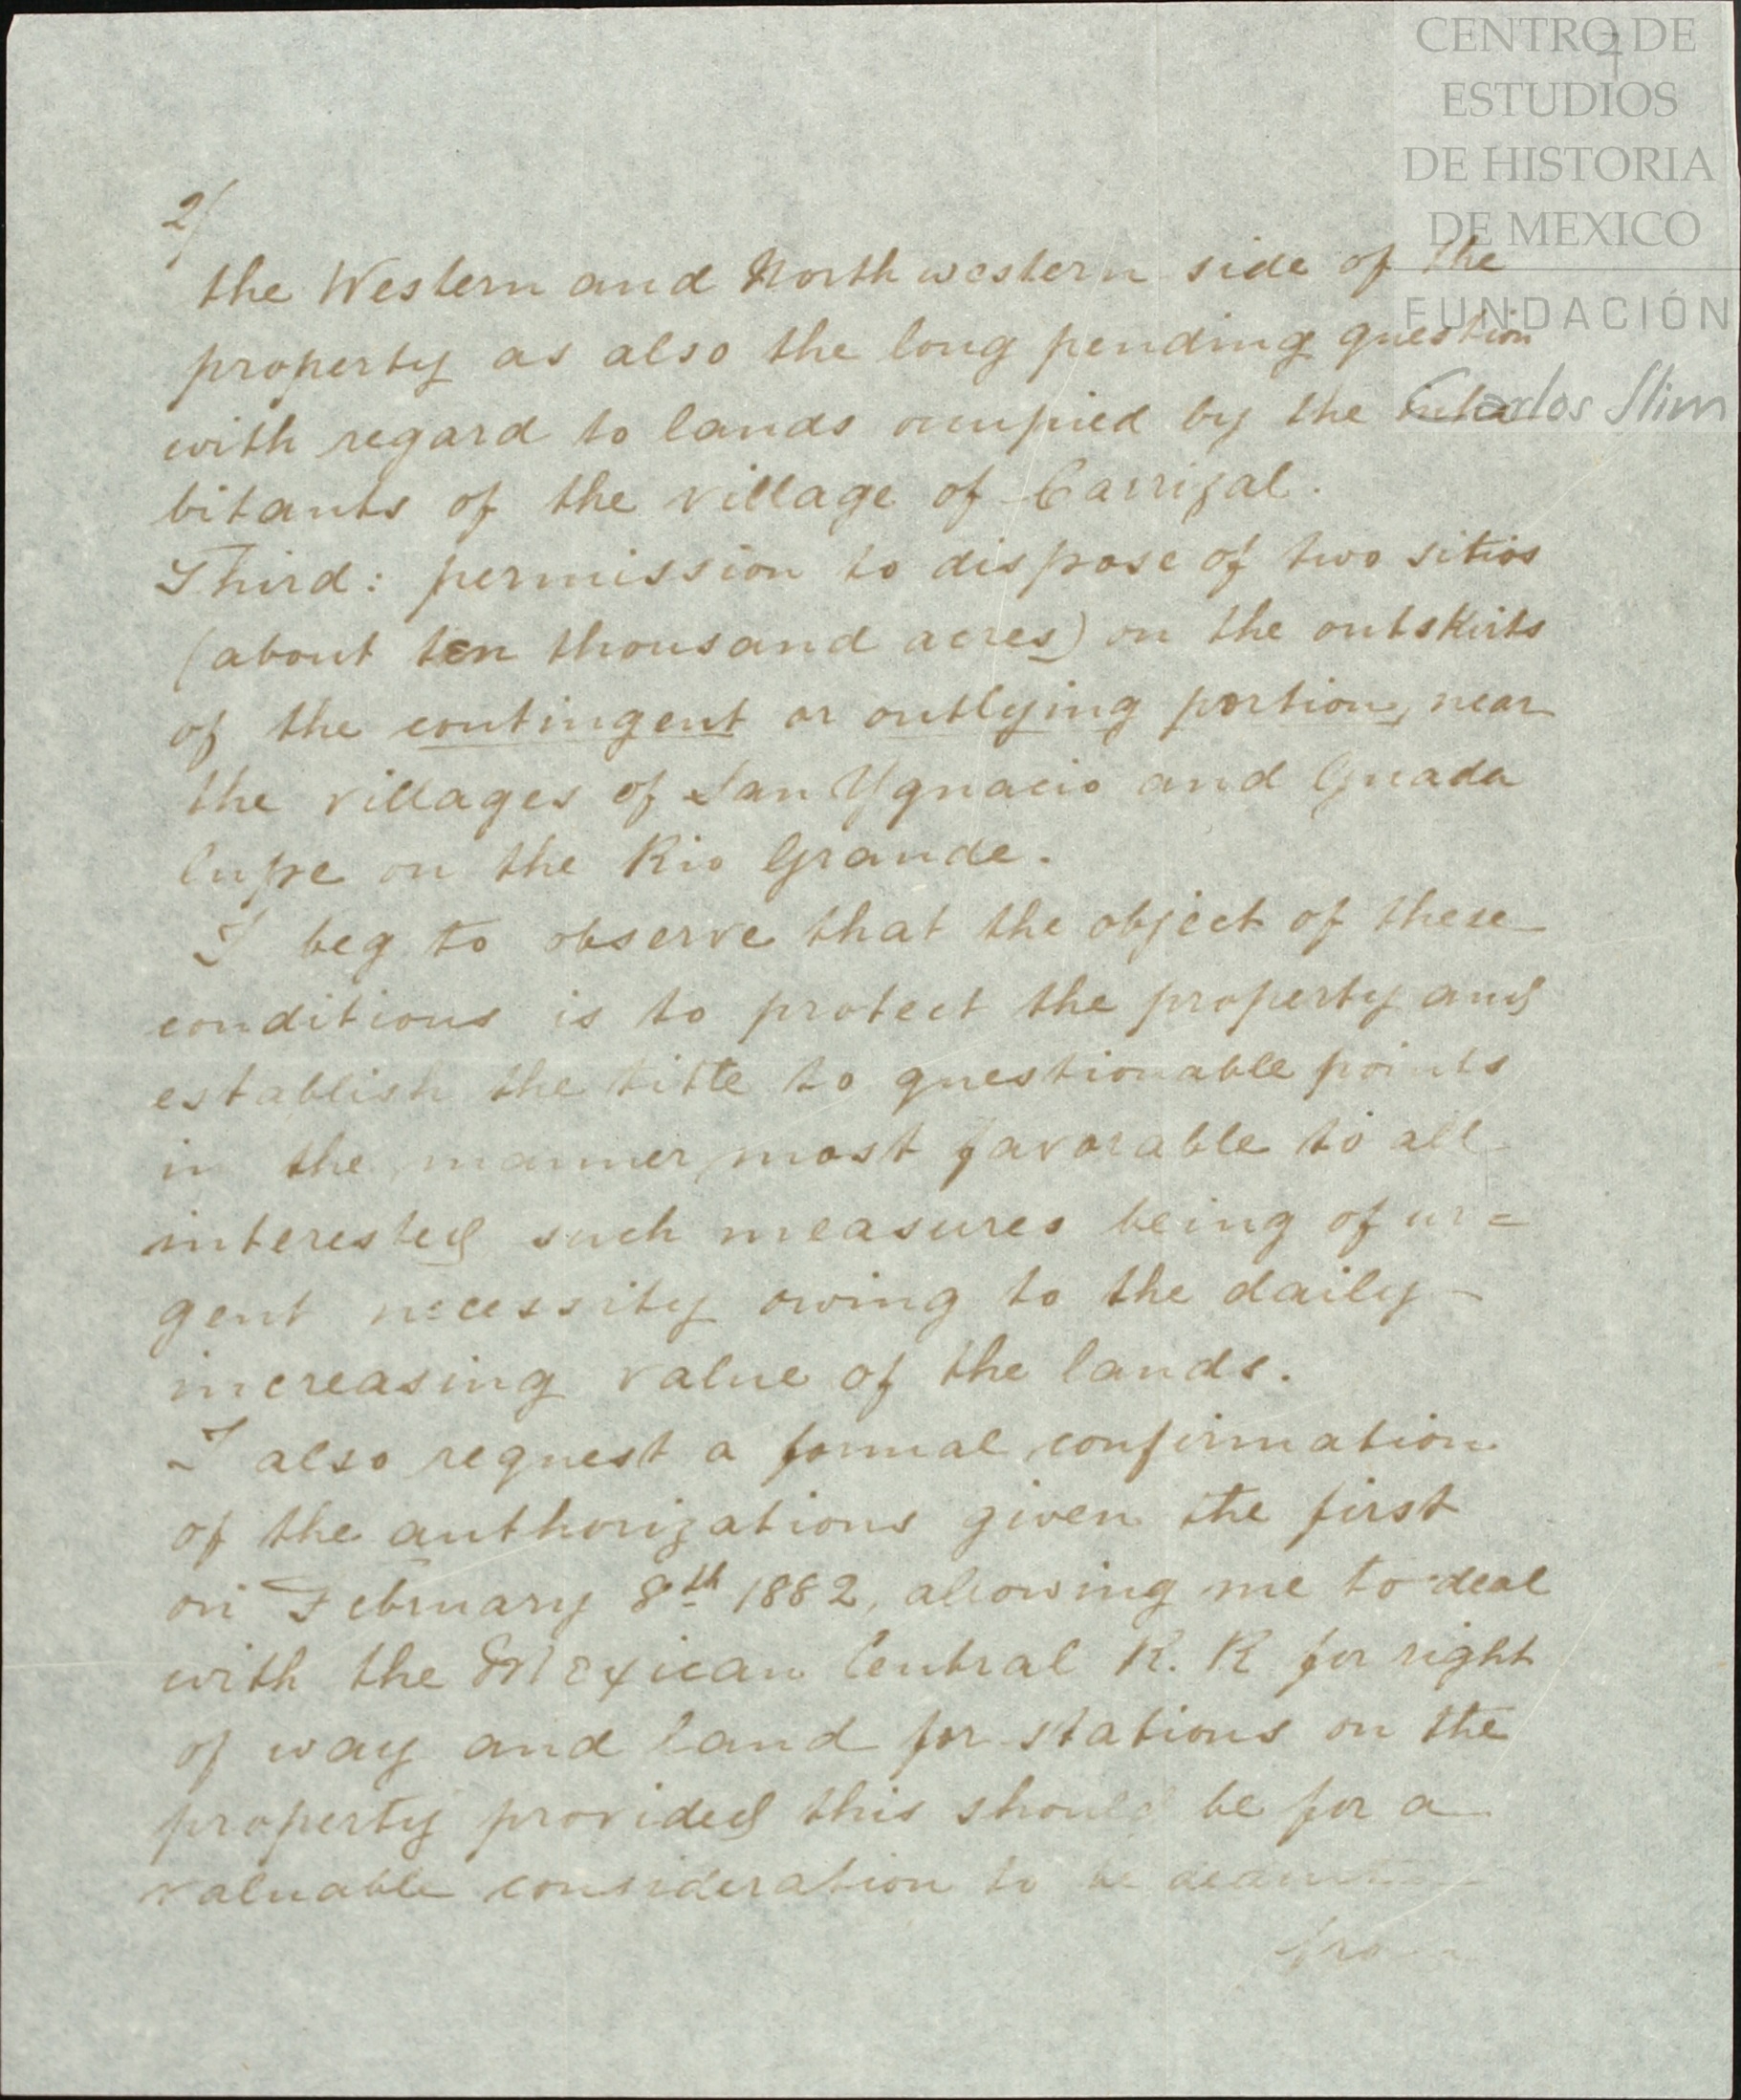 CENTRO DE
ESTUDIOS
DE HISTORIA
DE MEXICO
FUNDACIÓN
Carlos Slim
7
2/
the Western and North western side of the
property as also the long pending question
with regard to lands occupied by the inha
bitants of the village of Carrizal.
Third: permission to dispose of two sitios
(about ten thousand acres) on the outskirts
of the contingent or outlying portion, near
the villages of San Ygnacio and Guada
lupe on the Rio Grande.
I beg to observe that the object of these
conditions is to protect the property and
establish the title to questionable points
in the manner most favorable to all
interested such measures being of ur=
gent necessity owing to the daily
increasing value of the lands.
I also request a formal confirmation
of the authorizations given the first
on February 8th 1882, allowing me to deal
with the Mexican Central R. R for right
of way and land for stations on the
property provided this should be for a
valuable consideration to be